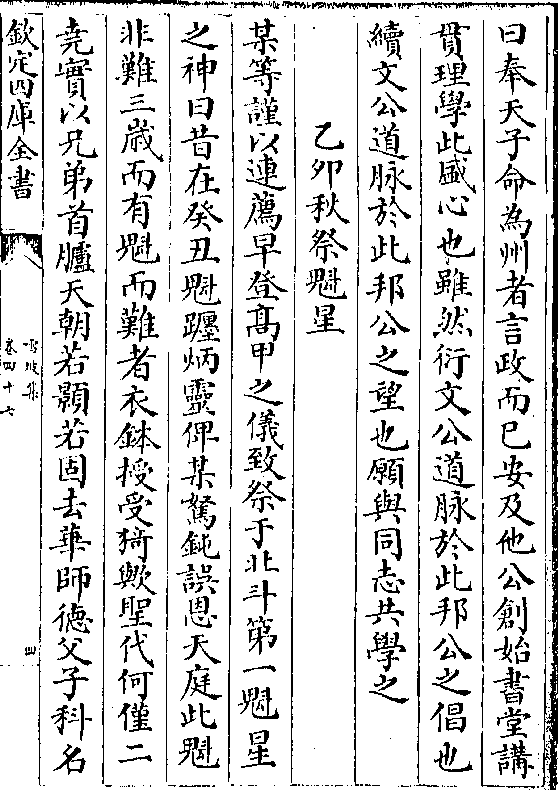 曰奉天子命為州者言政而已安及他公創始書堂講
貫理學此盛心也雖然衍文公道脉於此邦公之倡也
續文公道脉於此邦公之望也願與同志共學之
乙夘秋祭魁星
某等謹以連薦早登髙甲之儀致祭于北斗第一魁星
之神曰昔在癸丑魁躔炳靈俾某駑鈍誤恩天庭此魁
非難三歳而有魁而難者衣鉢授受猗歟聖代何僅二
尭實以兄弟首臚天朝若顥若固去華師徳父子科名
欽定四庫全書
雪坡集
卷四十七
四